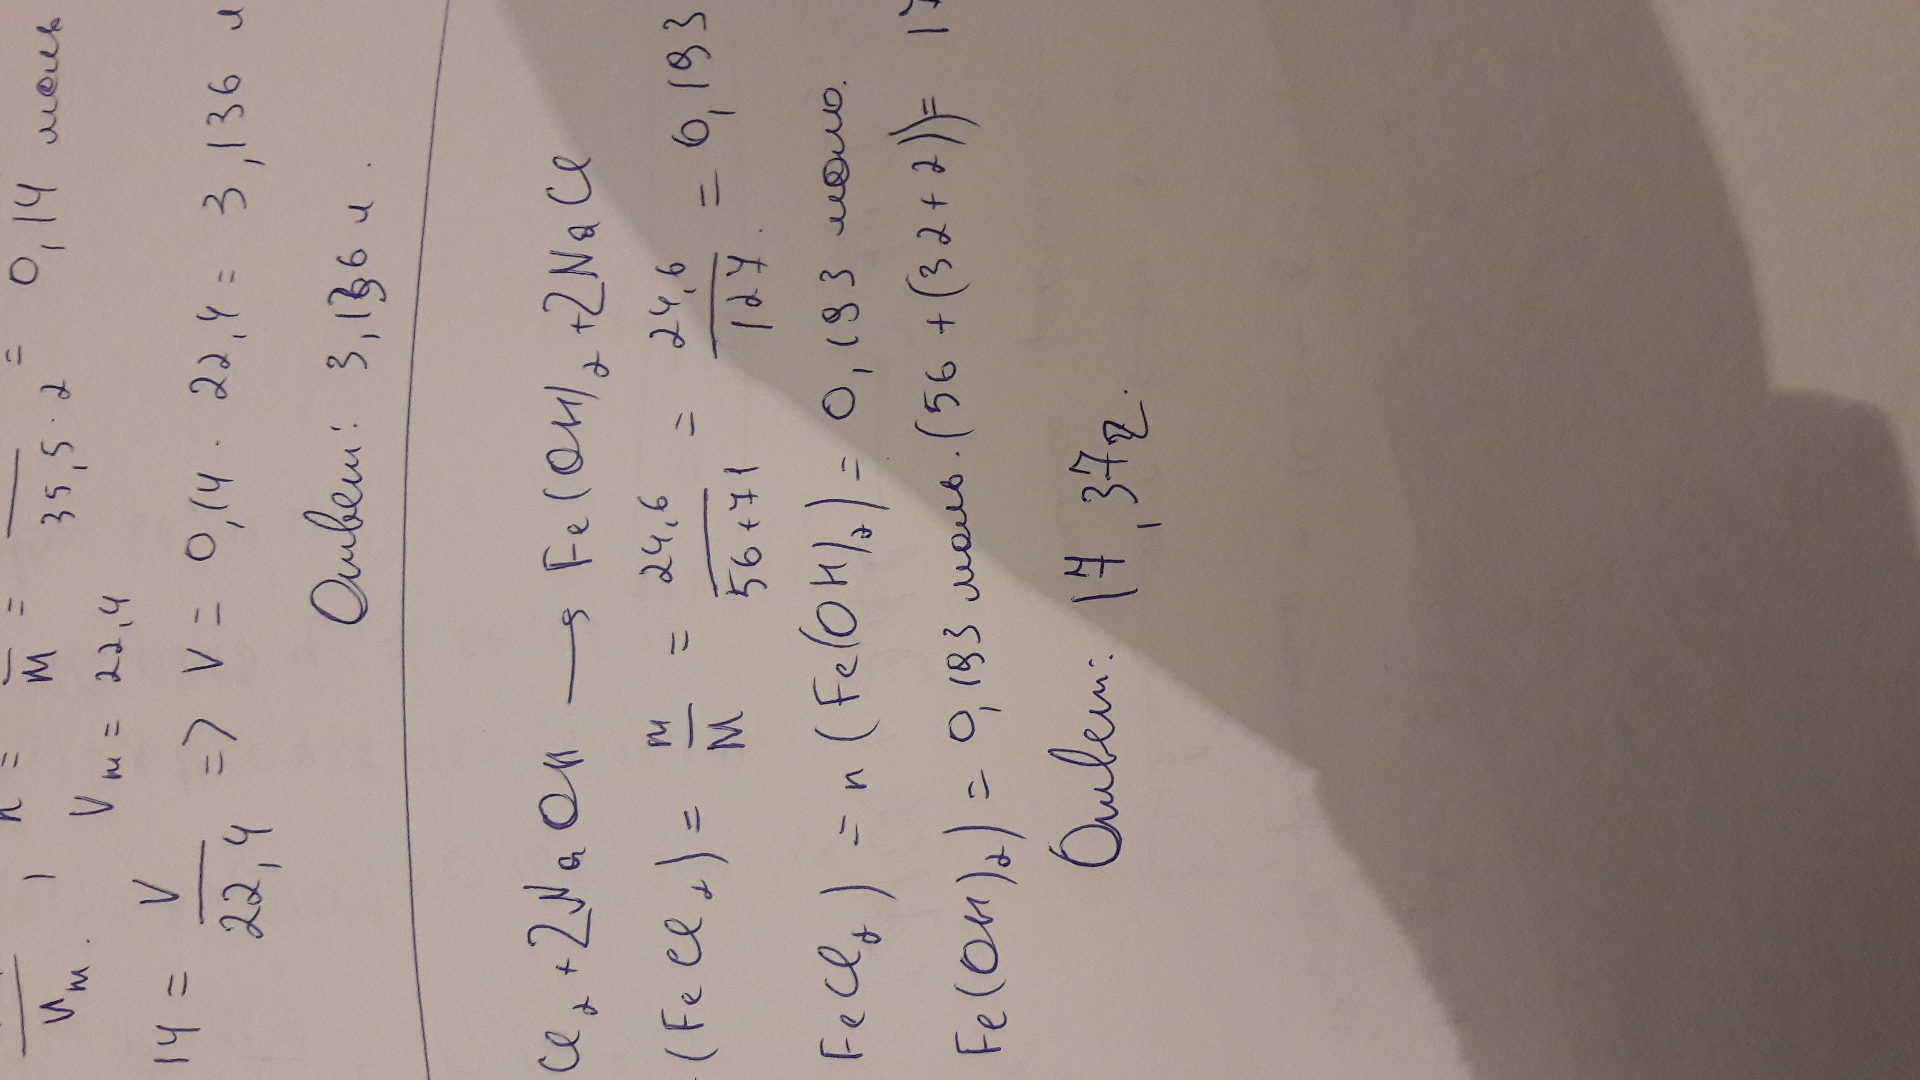 Vm. , n = m/M = /35,5·2 = 0,14 моль
Vm = 22,4
14 = V/22,4 => V = 0,14 · 22,4 = 3,136 л
Ответ: 3,136 л.
Cl2 + 2NaOH → Fe(OH)2 + 2NaCl
(FeCl2) = m/M = 24,6/56+71 = 24,6/127. = 0,193
FeCl2) = n (Fe(OH)2) = 0,193 моль.
Fe(OH)2) = 0,193 моль·(56+(32+2)) = 17
Ответ: 17,37г.